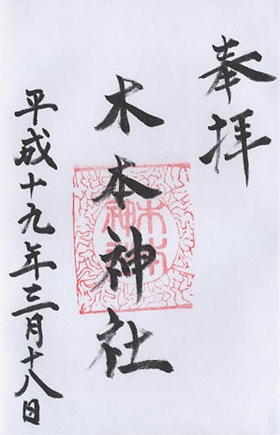 奉拝
木本神社
平成十九年三月十八日